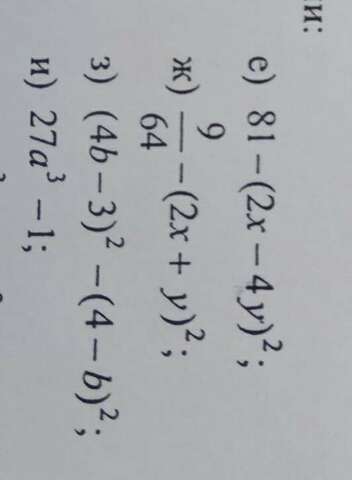 ти:
е) 81 – (2x – 4y)²;
ж) 9/64 – (2x + y)²;
з) (4b – 3)² – (4 – b)²;
и) 27a³ – 1;